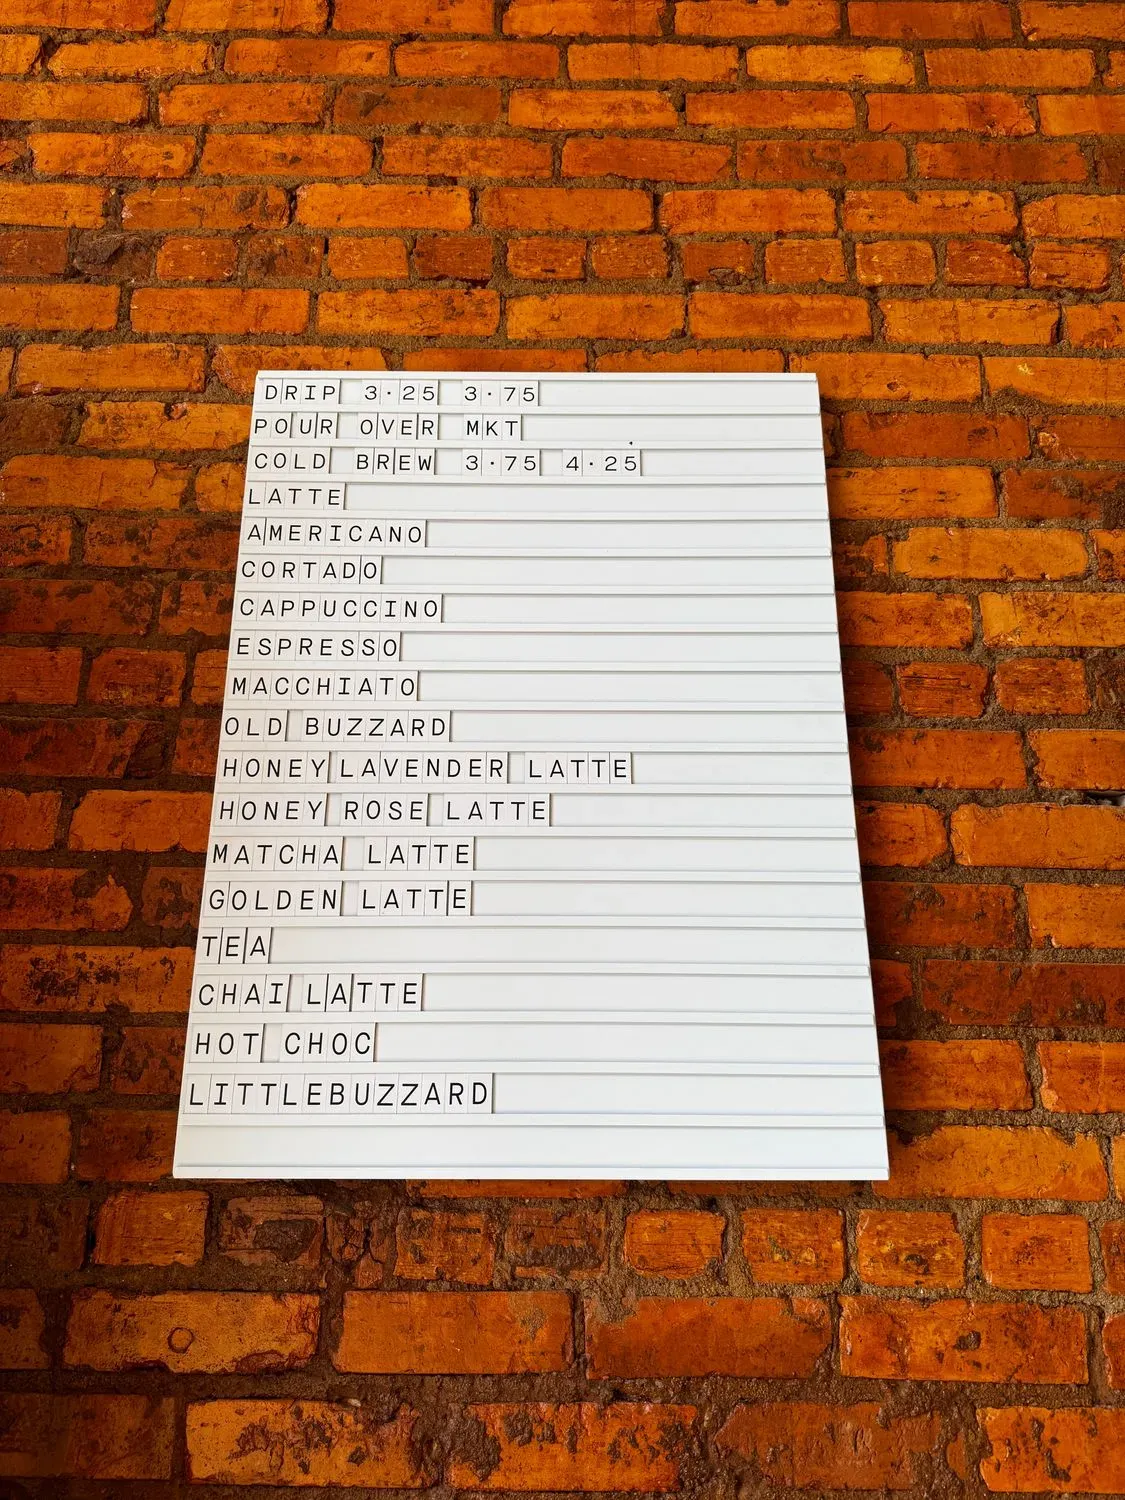 DRIP 3.25 3.75
POUR OVER MKT
COLD BREW 3.75 4.25
LATTE
AMERICANO
CORTADO
CAPPUCCINO
ESPRESSO
MACCHIATO
OLD BUZZARD
HONEY LAVENDER LATTE
HONEY ROSE LATTE
MATCHA LATTE
GOLDEN LATTE
TEA
CHAI LATTE
HOT CHOC
LITTLEBUZZARD